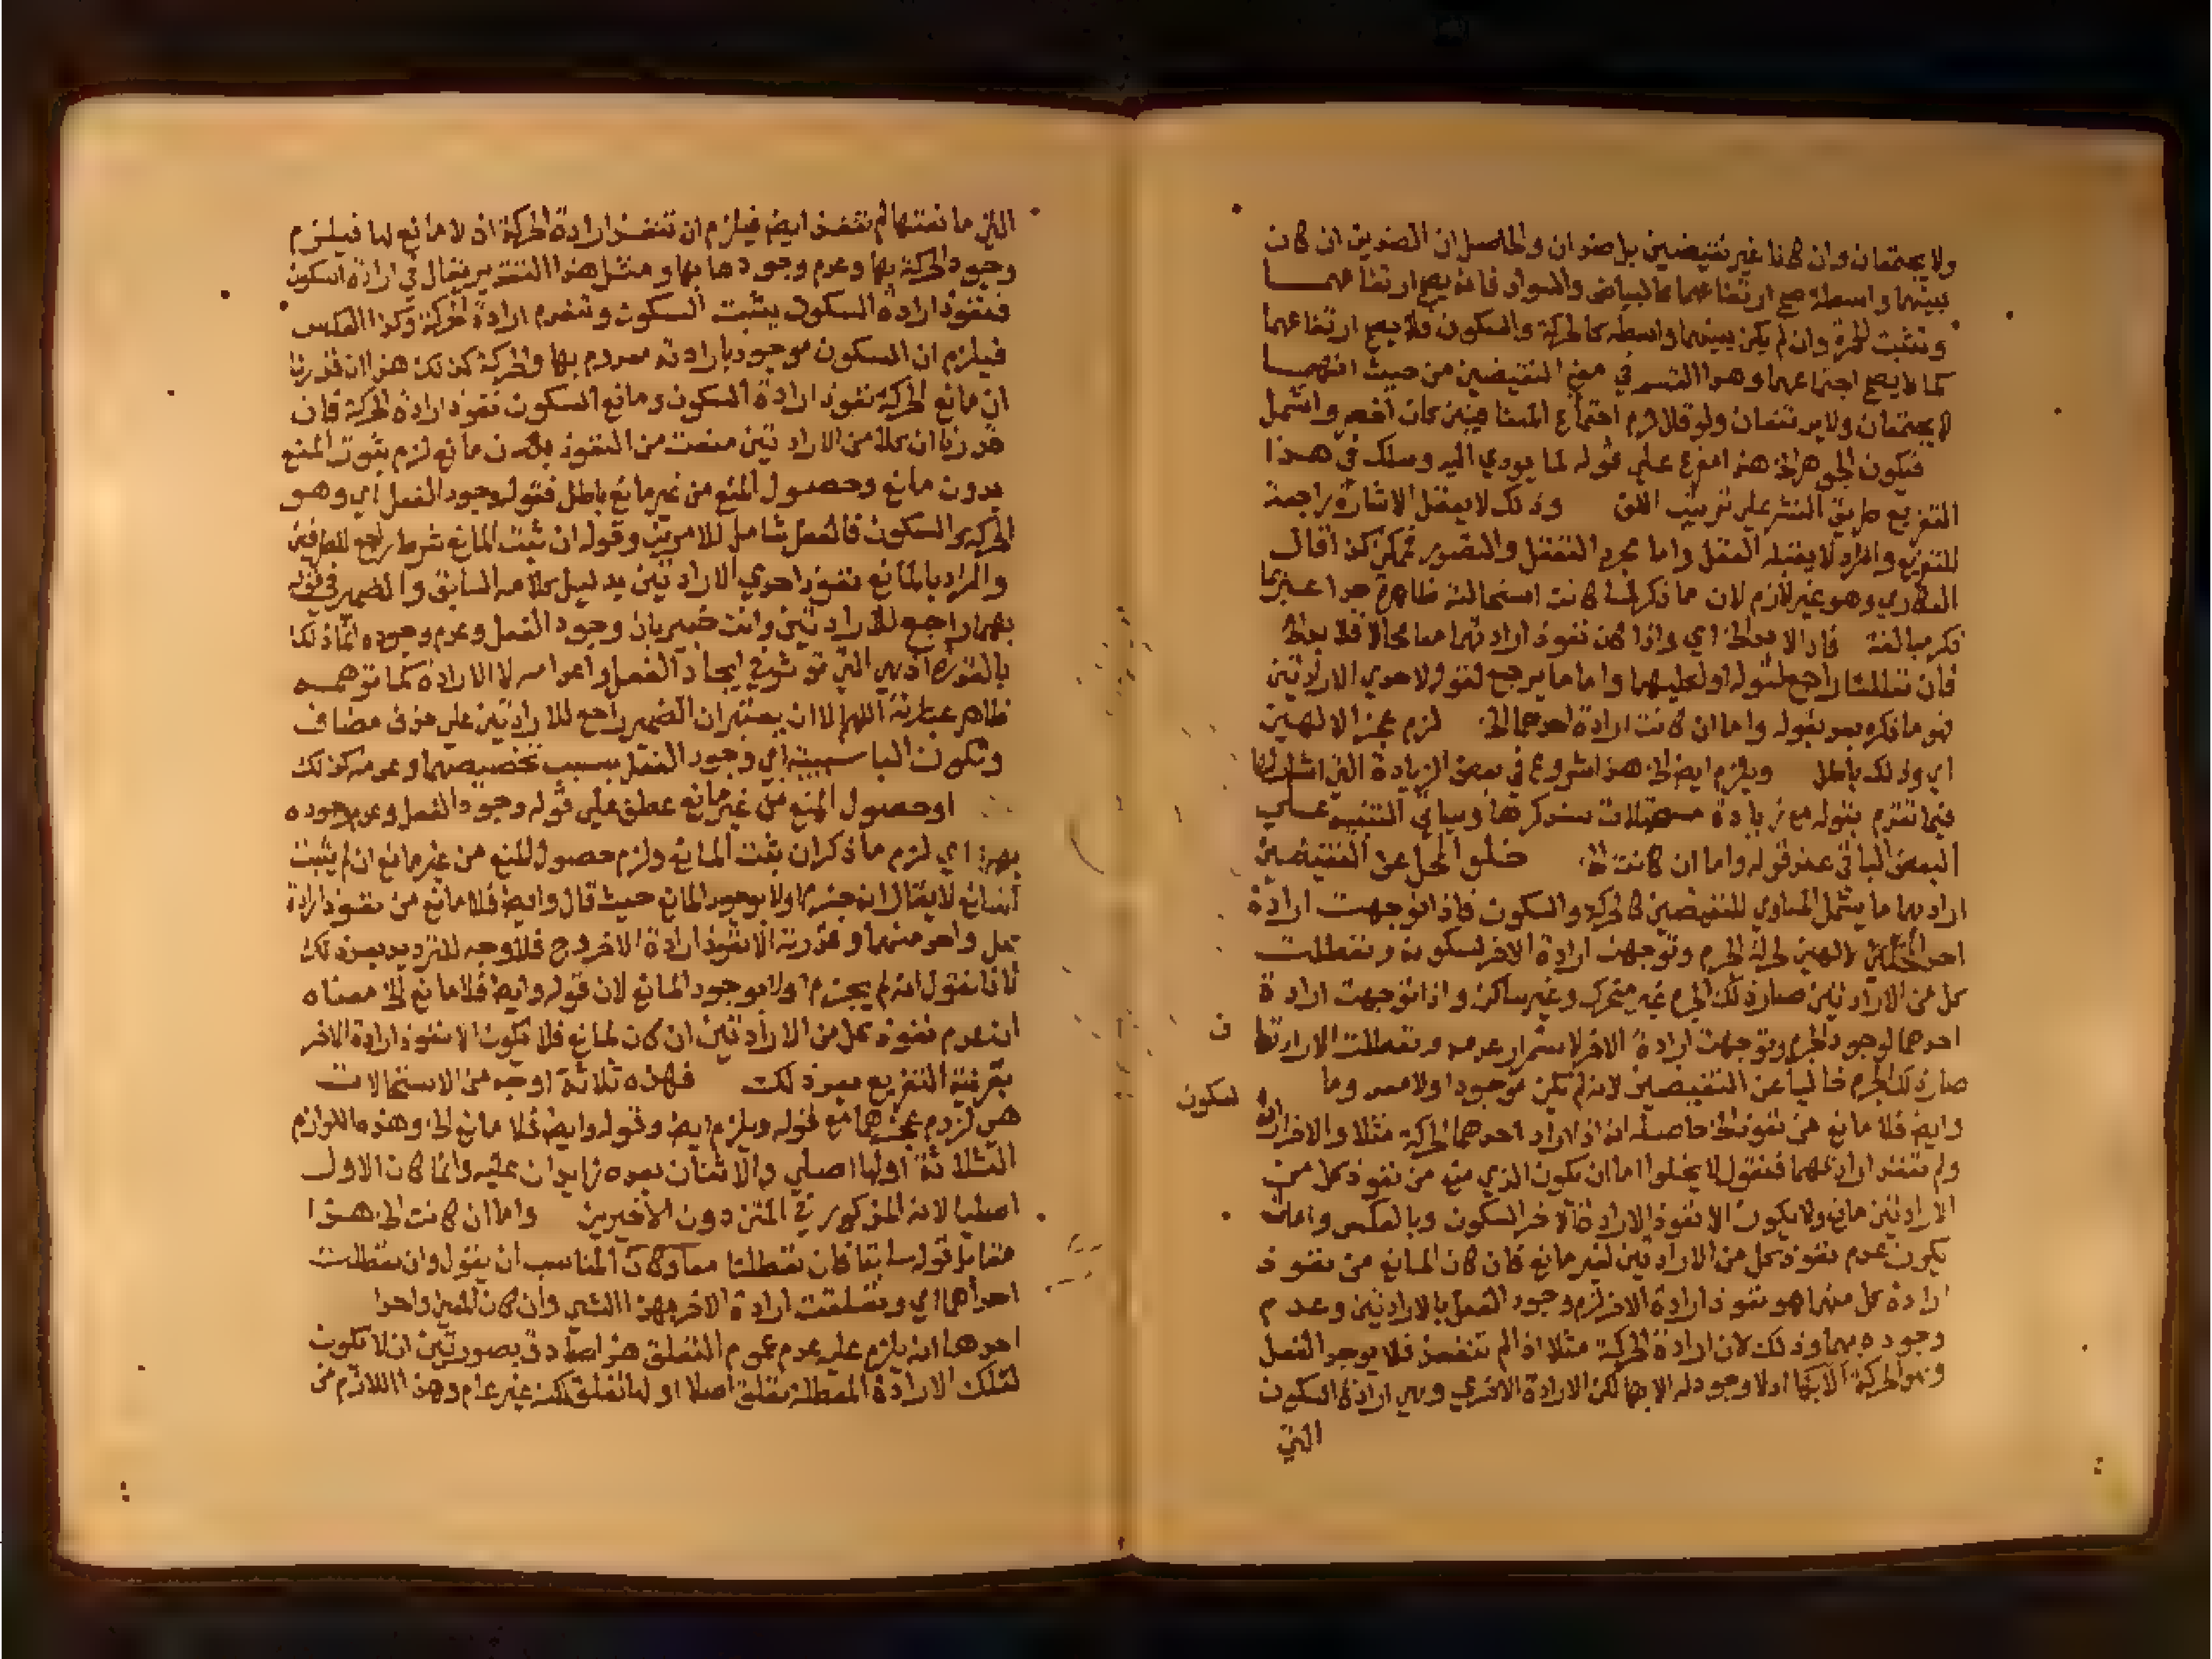 ولا يجتمعان وان كانا غير نقيضين بل ضدان والحاصل ان الضدين ان كان
بينهما واسطة صح ارتفاعهما كالبياض والسواد فانه يصح ارتفاعهما
وتثبت الحمرة وان لم يكن بينهما واسطة كالحركة والسكون فلا يصح ارتفاعهما
كما لا يصح اجتماعهما وهو القسم في معنى النقيضين من حيث انهما
لا يجتمعان ولا يرتفعان ولو قلا لزم اجتماع المتنافيين كان اخصر واشمل
فيكون الجوهر الخ هذا مفرع على قوله لما يودي اليه وسلك في هذا
التفريع طريق النشر على ترتيب اللف وذلك لا يعقل الاشارة راجعة
للتفريع والمراد لا يقبله العقل واما مجرد التعقل والتصور فممكن كذا قال
السكري وهو غير لازم لان ما ذكر لما كانت استحالته ظاهرة جدا عبر بما
ذكر مبالغة فاذا لا بد الخ اي واذا كان نفوذ ارادتهما معا محالا فلا بد الخ
فان تعطلتا راجع لقوله او لعليهما واما ما يرجع لقوله ولاحدي الارادتين
فهو ما ذكره بعد بقوله واما ان كانت ارادة احدهما الخ لزم عجز الالهين
اي وذلك باطل ويلزم ايض الخ هذا شروع في بعض الزيادة التي اشار لها
فيما تقدم بقوله مع زيادة مستحيلات سنذكرها وسياتي التنبيه على
البعض الباقي عند قوله واما ان كانت الخ خلو المحل عن النقيضين
اراد بهما ما يشمل المساوي للنقيضين كالحركة والسكون فاذا توجهت ارادة
احد الالهين لحركة الجرم وتوجهت ارادة الاخر لسكونه وتعطلت
كل من الارادتين صار ذلك الجرم غير متحرك وغير ساكن واذا توجهت ارادة
احدهما لوجود الجرم وتوجهت ارادة الاخر لاستمرار عدمه وتعطلت الارادتان
صار ذلك الجرم خاليا عن النقيضين لانه لم يكن موجودا ولا معدوما
وايض فلا مانع من نفوذ الخ حاصله انه اذا اراد احدهما الحركة مثلا والاخر اراد السكون
ولم تنفذ ارادتهما فنقول لا يخلوا اما ان يكون الذي منع من نفوذ كل من
الارادتين مانع ولا يكون الا نفوذ الارادة الاخر السكون وبالعكس واما ان
يكون عدم نفوذ كل من الارادتين لغير مانع فان كان المانع من نفوذ
ارادة كل منهما هو نفوذ ارادة الاخر لزم وجود الفعل بالارادتين وعدم
وجوده بهما وذلك لان ارادة الحركة مثلا اذا لم تنفذ فلا يوجد الفعل
وهو الحركة الا بها اذ لا وجود له الا بها لكن الارادة الاخرى وهي ارادة السكون
التي
التي ما نعتها لم تنفذ ايض فيلزم ان تنفذ ارادة الحركة اذ لا مانع لها فيلزم
وجود الحركة بها وعدم وجودها بها ومثل هذا التقدير يقال في ارادة السكون
فنفوذ ارادة السكون يثبت السكون وتنعدم ارادة الحركة وكذا العكس
فيلزم ان السكون موجود بارادته معدوم بها والحركة كذلك هذا ان قدرنا
ان مانع الحركة نفوذ ارادة السكون ومانع السكون نفوذ ارادة الحركة فان
قدرنا ان كلا من الارادتين منعت من النفوذ بدون مانع لزم ثبوت المنع
بدون مانع وحصول المنع من غير مانع باطل فقوله وجود الفعل اي وهو
الحركة والسكون فالفعل شامل للامرين وقوله ان ثبت المانع شرط راجع للطرفين
والمراد بالمانع نفوذ احدي الارادتين بدليل كلامه السابق والضمير في قوله
بهما راجع للارادتين وانت خبير بان وجود الفعل وعدم وجوده انما ذلك
بالقدرة اذ هي التي تؤثر في ايجاد الفعل واعدامه لا الارادة كما توهمه
ظاهر عبارته اللهم الا ان يعتبر ان الضمير راجع للارادتين على حذف مضاف
وتكون البا سببية اي وجود الفعل بسبب تخصيصهما وعدمه كذلك
او حصول المنع من غير مانع عطف على قوله وجود الفعل وعدم وجوده
بهما اي لزم ما ذكر ان ثبت المانع ولزم حصول المنع من غير مانع ان لم يثبت
المانع لا يقال انه جزم اولا بوجود المانع حيث قال وايض فلا مانع من نفوذ ارادة
كل واحد منهما وقدرته الا نفوذ ارادة الاخر وح فلا وجه للترديد بعد ذلك
لانا نقول انه لم يجزم اولا بوجود المانع لان قوله وايض فلا مانع الخ معناه
ان عدم نفوذ كل من الارادتين ان كان لمانع فلا يكون الا نفوذ ارادة الاخر
بقرينة التفريع بعد ذلك فهذه ثلاثة اوجه من الاستحالات
هي لزوم عجزهما مع قوله ويلزم ايض وقوله وايض فلا مانع الخ وهذه اللوازم
الثلاثة اولها اصلي والاثنان بعده زايدان عليه وانما كان الاول
اصليا لانه المذكور في المتن دون الاخيرين واما ان كانت الخ هذا
مقابل قوله سابقا فان تعطلتا معا وكان المناسب ان يقول وان تعطلت
احداهما اي وتعلقت ارادة الاخر بهذا الشي وان كان للمعنى واحدا
احدهما انه يلزم عليه عدم عموم التعلق هذا صادق بصورتين ان لا تكون
لتلك الارادة المعطلة تعلق اصلا او لها تعلق لكنه غير عام وهذا اللازم من